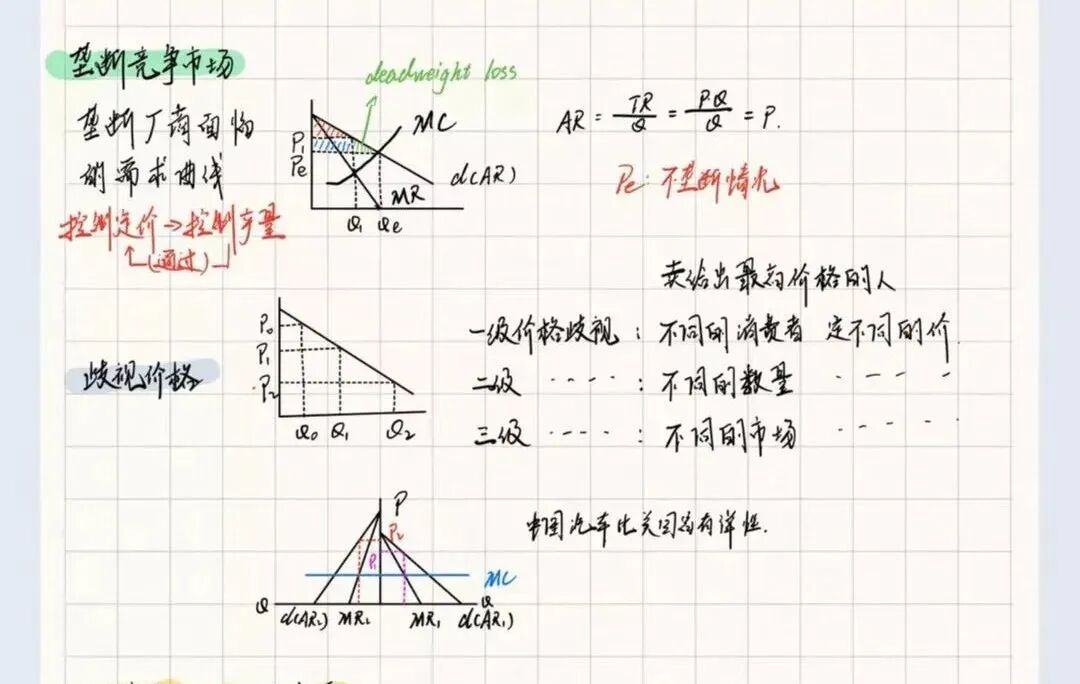 垄断竞争市场
垄断厂商面临
的需求曲线
控制定价→控制产量
(通过)
deadweight loss
P₁
Pe
MC
d(AR)
MR
Q₁ Qe
AR = TR/Q = P·Q/Q = P.
Pe: 不垄断情况
歧视价格
P₀
P₁
P₂
Q₀ Q₁ Q₂
卖给出最高价格的人
一级价格歧视: 不同的消费者 定不同的价
二级 ····: 不同的数量 ----
三级 ····: 不同的市场 -----
P
P₂
P₁
MC
Q d(AR₂) MR₂ MR₁ d(AR₁) Q
中国汽车比美国富有弹性.